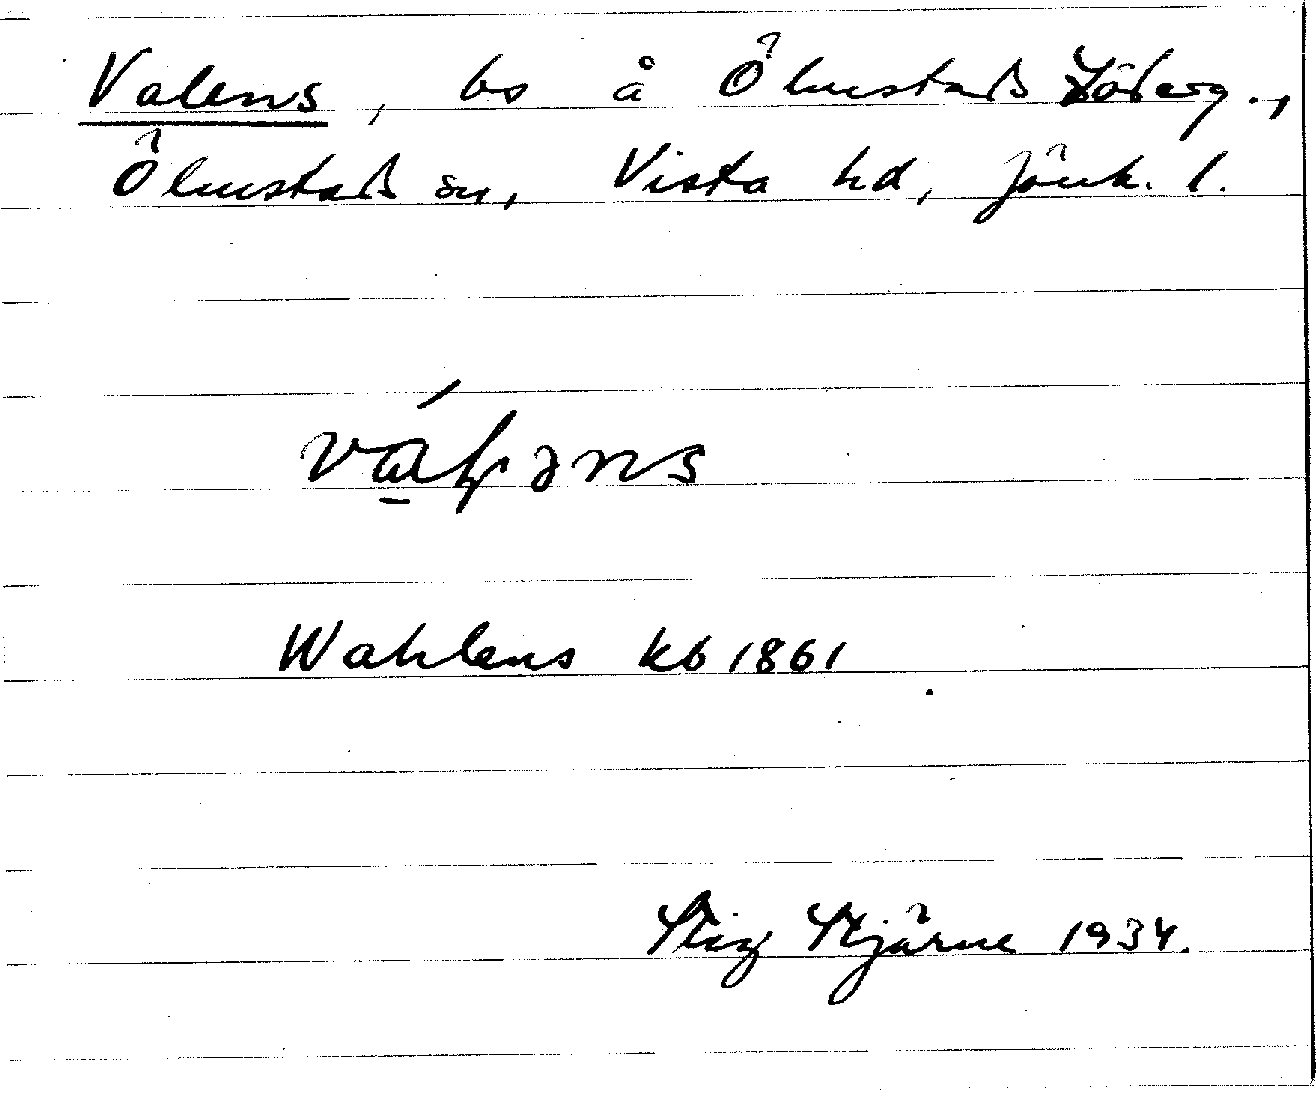 Valens, bs å Ölmstads Söderg.,
Ölmstads sn, Vista hd, Jönk. l.
Wahlens kb 1861
Stig Stjärne 1934.